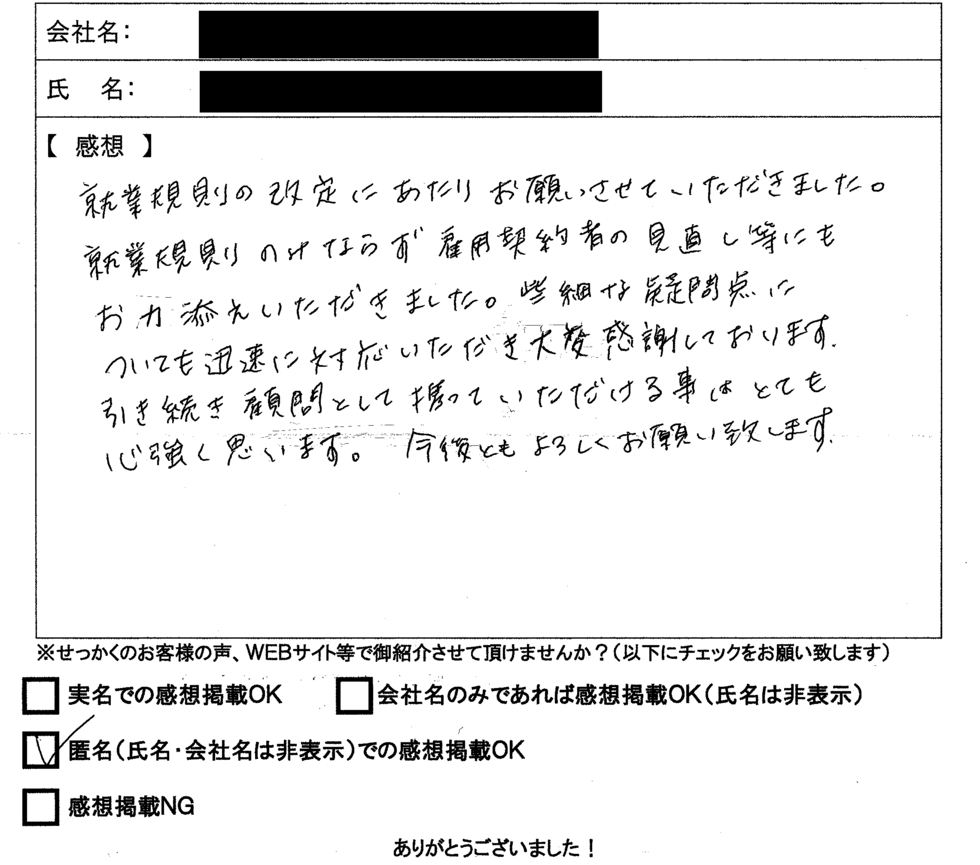 会社名:
氏 名:
【 感想 】
就業規則の改定にあたりお願いさせていただきました。
就業規則のみならず雇用契約者の見直し等にも
お力添えいただきました。些細な疑問点に
ついても迅速に対応いただき大変感謝しております.
引き続き顧問として携っていただける事はとても
心強く思います。 今後ともよろしくお願い致します.
※せっかくのお客様の声、WEBサイト等で御紹介させて頂けませんか?(以下にチェックをお願い致します)
実名での感想掲載OK 会社名のみであれば感想掲載OK(氏名は非表示)
匿名(氏名・会社名は非表示)での感想掲載OK
感想掲載NG
ありがとうございました!